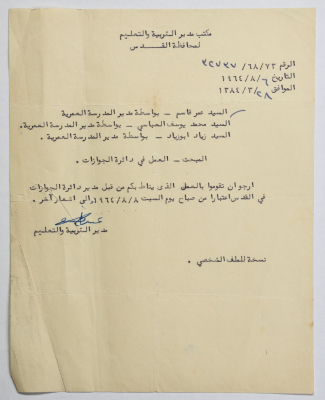 مكتب مدير التربية والتعليم
لمحافظة القدس
الرقم ٣٢٧٣٧/٦٨/٧٣
التاريخ ١٩٦٤/٨/٦
الموافق ١٣٨٤/٣/٢٨
السيد عمر قاسم – بواسطة مدير المدرسة العمرية
السيد محمد يوسف العباسي – بواسطة مدير المدرسة العمرية.
السيد زياد ابوزياد – بواسطة مدير المدرسة العمرية .
المبحث – العمل في دائرة الجوازات.
ارجو ان تقوموا بالعمل الذى يناط بكم من قبل مدير دائرة الجوازات
في القدس اعتبارا من صباح يوم السبت ١٩٦٤/٨/٨ والى اشعار آخر .
مدير التربية والتعليم
نسخة للملف الشخصي .